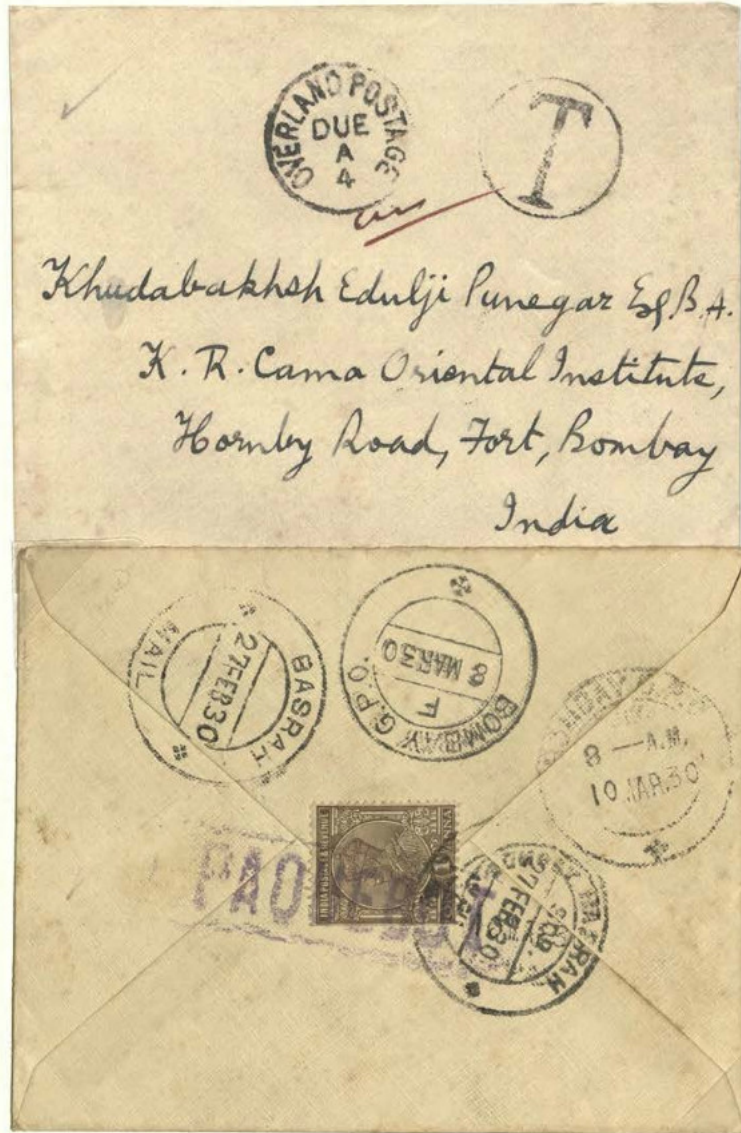 OVERLAND POSTAGE
DUE
A
4
T
Khudabakhsh Edulji Punegar Esq B.A.
K. R. Cama Oriental Institute,
Hornby Road, Fort, Bombay
India
BASRAH
27 FEB 30
MAIL
BOMBAY G.P.O.
F
8 MAR 30
8 — A.M.
10 MAR.30
INDIA POSTAGE & REVENUE
BASRAH
27 FEB 30